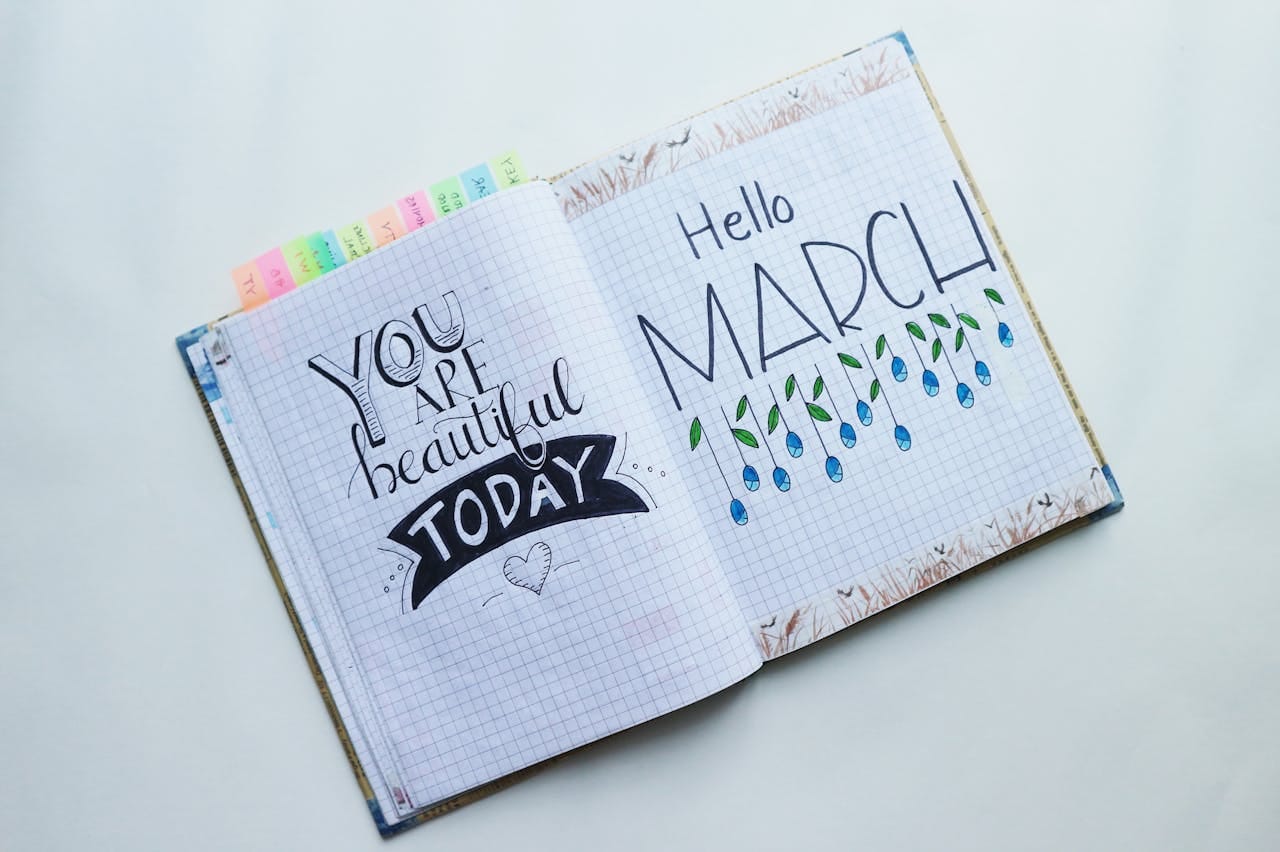 YOU
ARE
beautiful
TODAY
Hello
MARCH
KEY